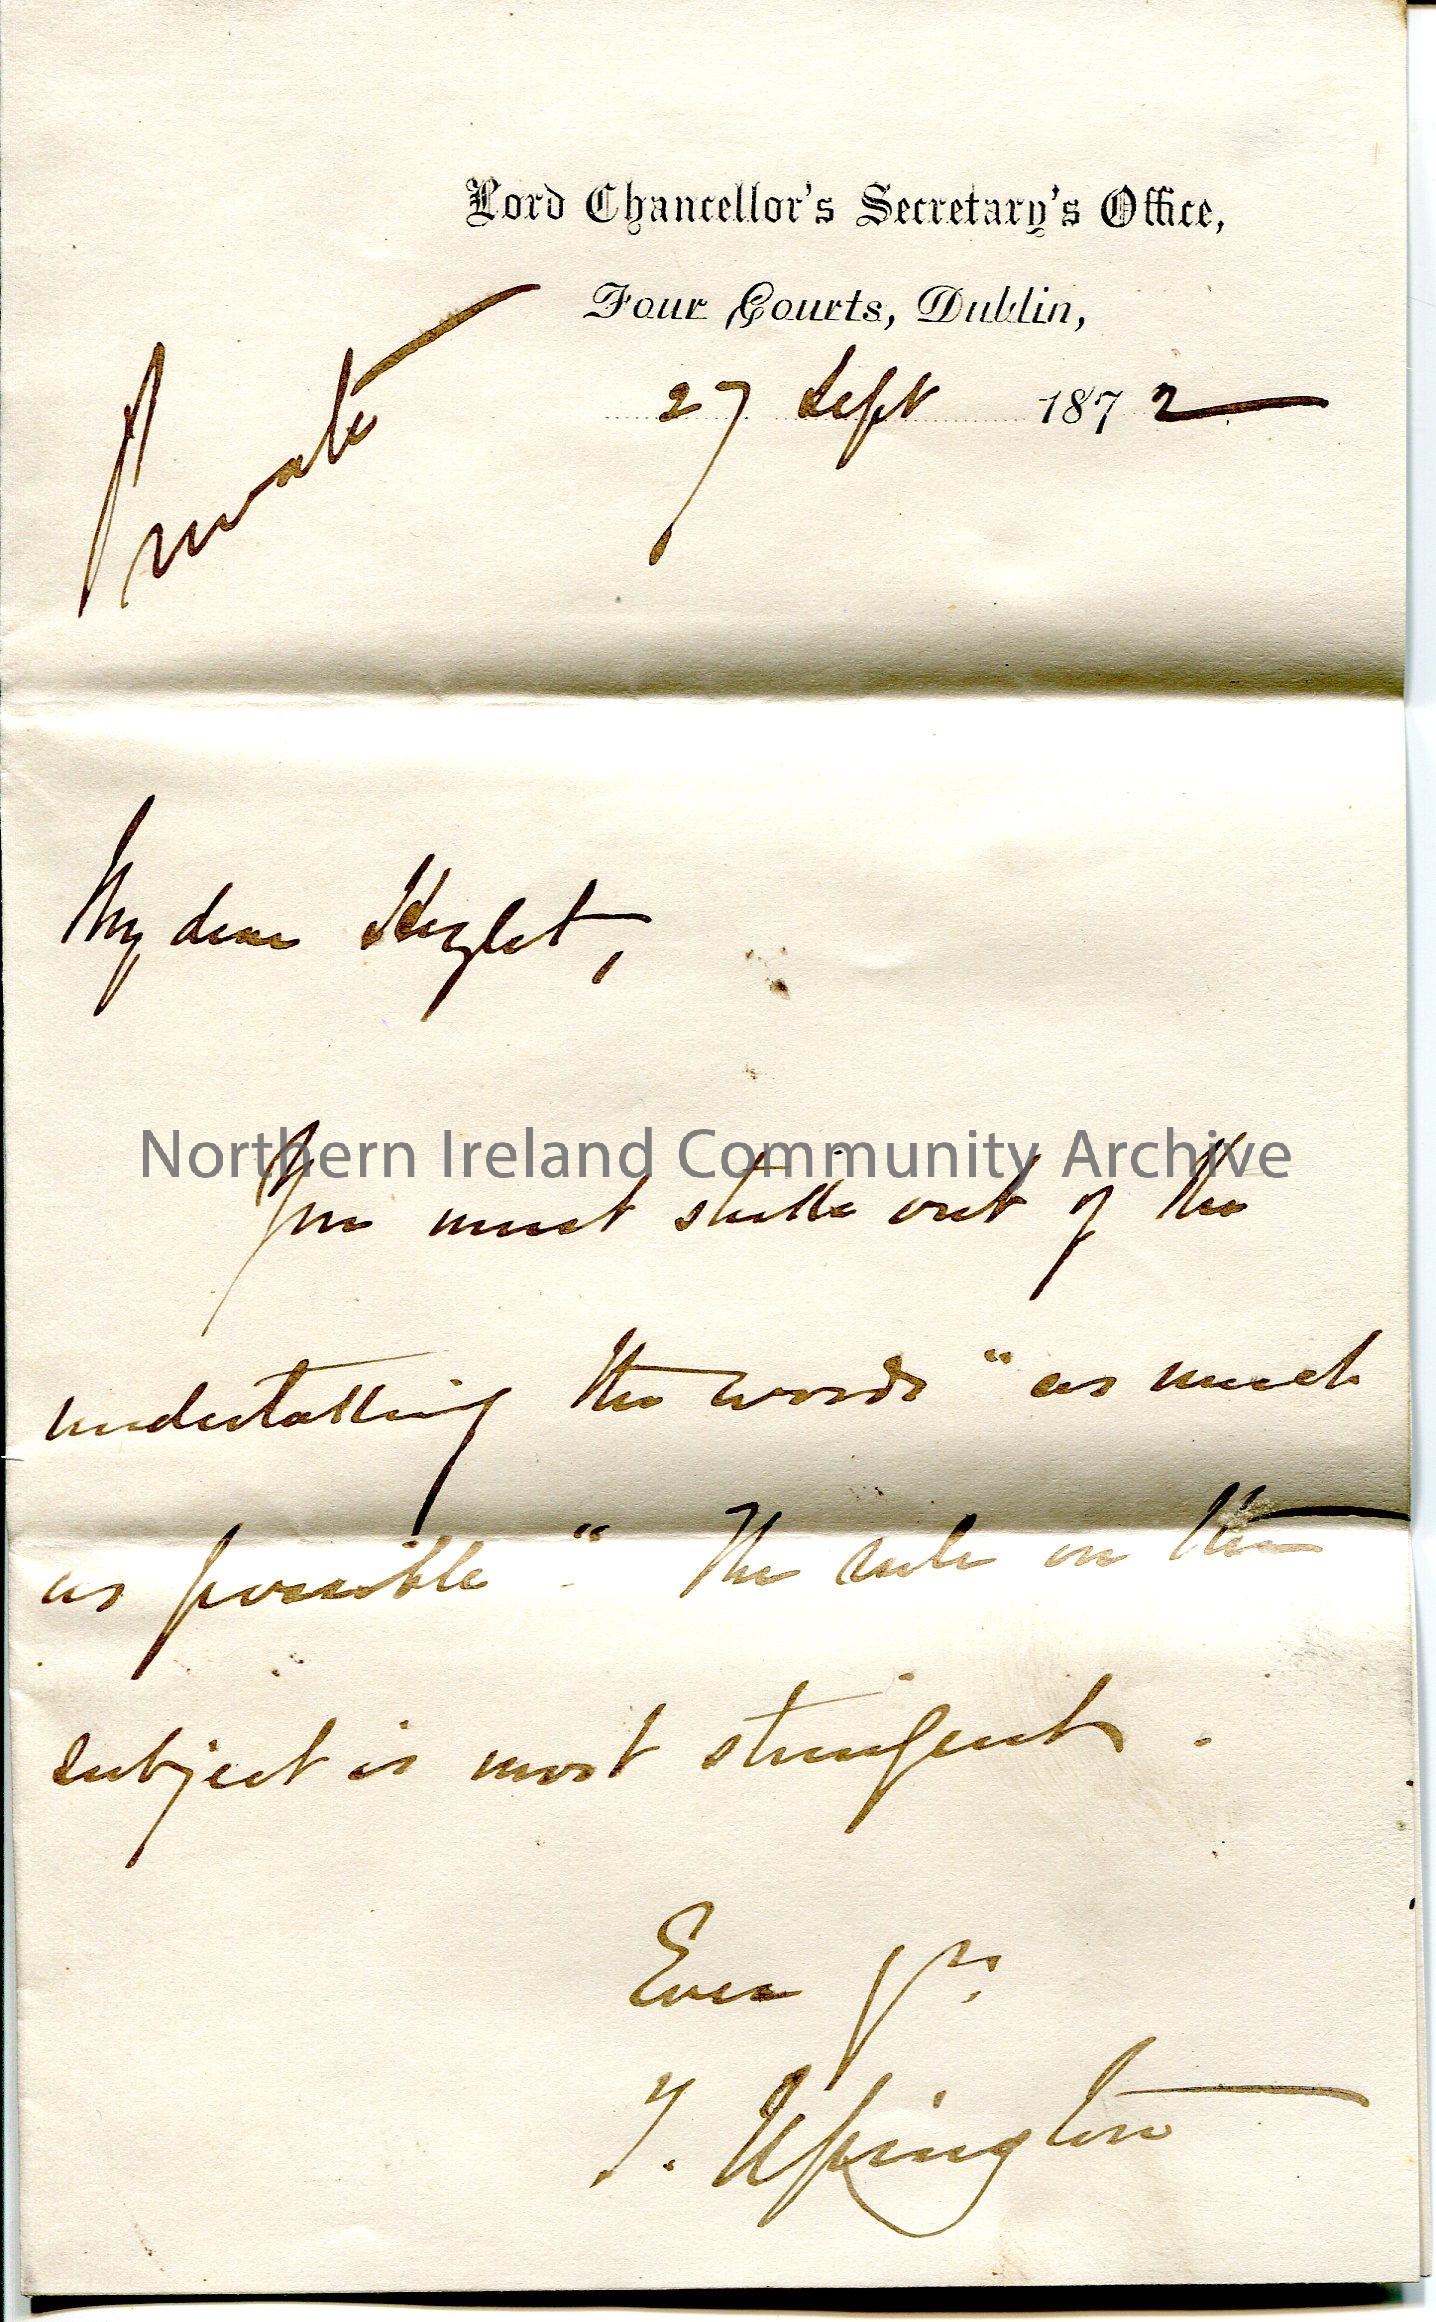 Lord Chancellor's Secretary's Office,
Four Courts, Dublin,
27 Sept 1872
Private
My dear Hezlet,
Northern Ireland Community Archive
You must strike out of the
undertaking the words "as much
as possible". The rule on the
subject is most stringent.
Ever yrs.
T. Upington